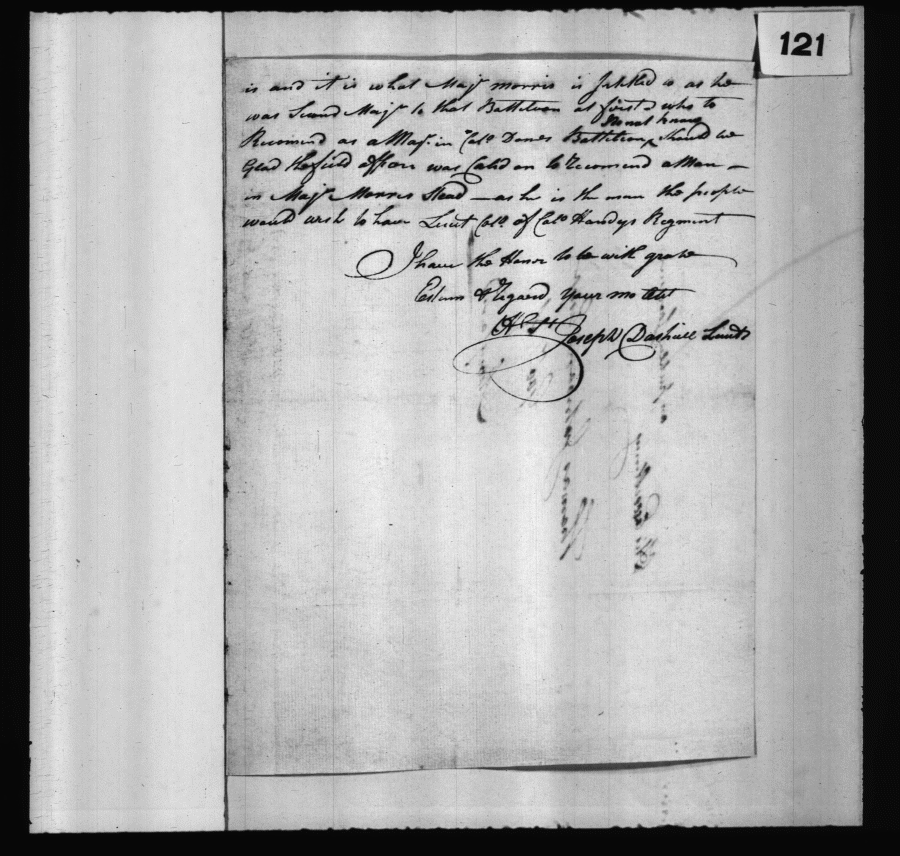 121
is and it is what Majr morris is Intitled to as he
was Second Majr to that Battelion at first & who to
I know not
Recomend as a Majr in Colo Dones Battelion, should be
Glad the field officers was Calld on to Recomend a Man —
in Majr Morris Stead — as he is the man the people
would wish to have Lieut Colo of Colo Handys Regiment
I have the Honor to be with grate
Esteem & Regard, your mo Obt
Hbl St Joseph Dashiell Lieut